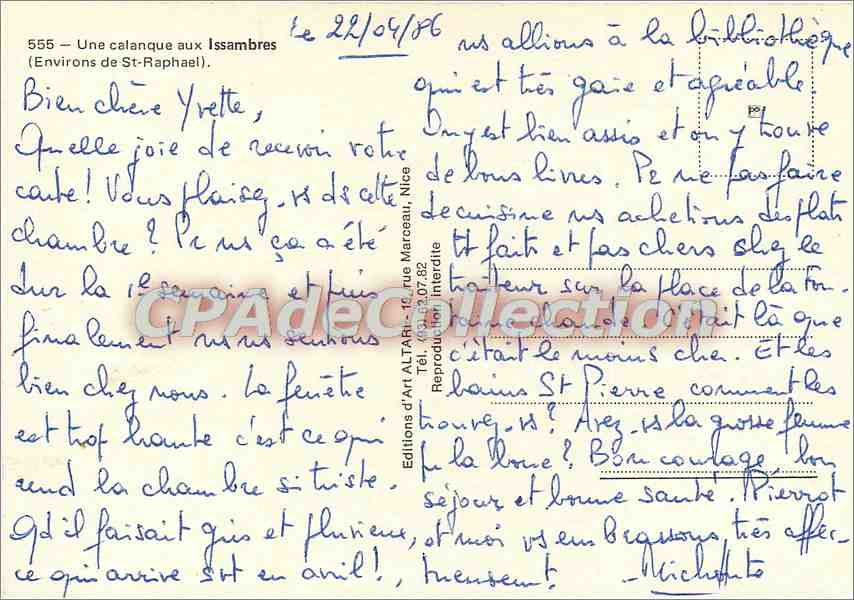 555 — Une calanque aux Issambres
(Environs de St-Raphael).
le 22/04/86
Bien chère Yvette,
Quelle joie de recevoir votre
carte! Vous plaisez-vs ds cette
chambre? Pr ns ça a été
dur la 1e semaine et puis
finalement ns ns sentions
bien chez nous. La fenêtre
est trop haute c'est ce qui
rend la chambre si triste.
Qd il faisait gris et pluvieux,
ce qui arrive svt en avril!,
Editions d'Art ALTARI - 19, rue Marceau, Nice
Tél. (93) 62.07.82
Reproduction interdite
ns allions à la bibliothèque
qui est très gaie et agréable.
On y est bien assis et on y trouve
de bons livres. Pr ne pas faire
de cuisine ns achetions des plats
tt faits et pas chers chez le
traiteur sur la place de la Fon-
taine chaude. C'était là que
c'était le moins cher. Et les
bains St Pierre comment les
trouvez-vs? Avez-vs la grosse femme
pr la boue? Bon courage, bon
séjour et bonne santé. Pierrot
et moi vs embrassons très affec-
tueusement.
CPAdeCollection